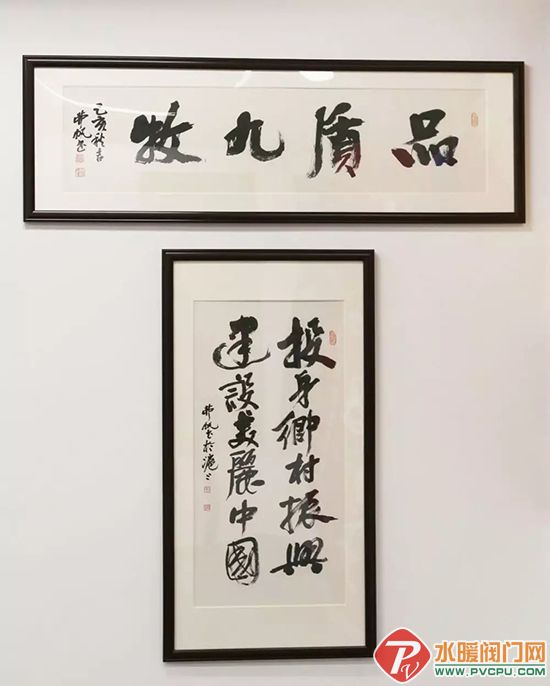 品質九牧
己亥秋吉
投身鄉村振興
建設美麗中國
书於滬上
水暖阀门网
WWW.PVCPU.COM